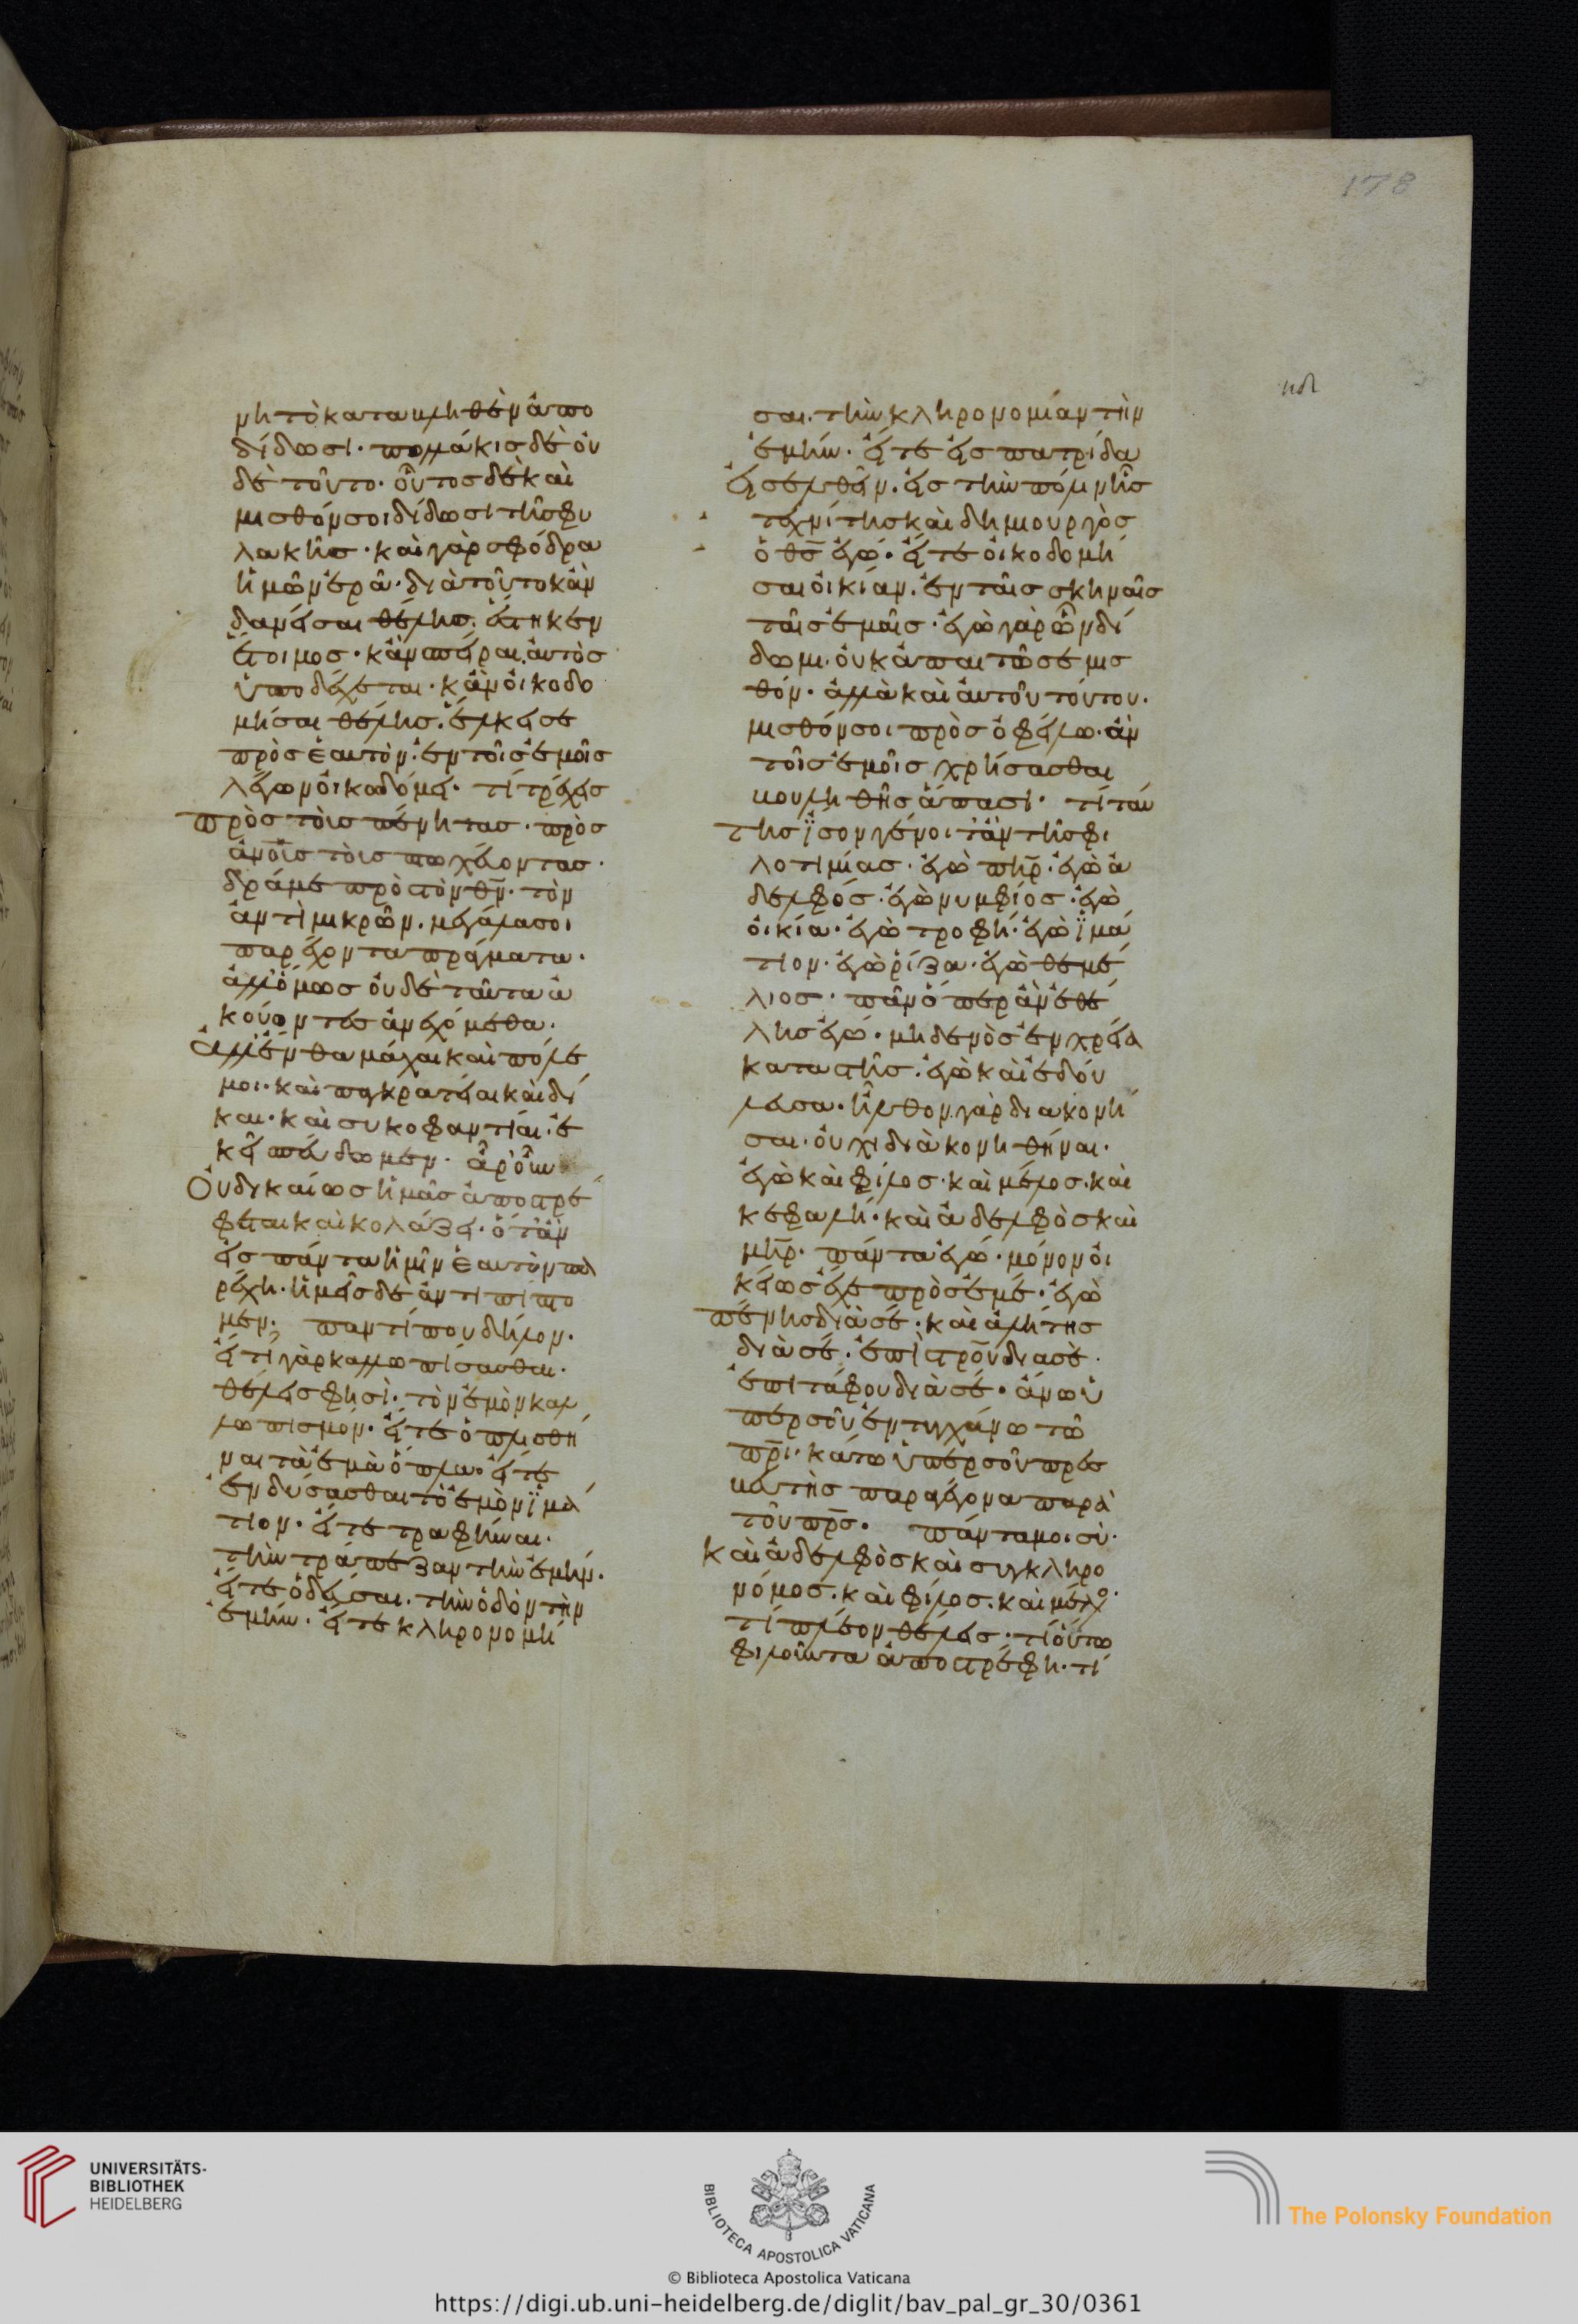 νη τὸ καταβληθὲν ἀπο
δίδωσι· πολλάκις δὲ οὐ
δὲ τοῦτο· οὗτος δὲ καὶ
μισθόν σοι δίδωσι τῆς φυ
λακῆς· καὶ γὰρ σφόδρα
ἡμῶν ἐρᾶ· διὰ τοῦτο κἂν
δανείσαι θέλης· ἕστηκεν
ἕτοιμος· κἂν σπεῖραι, αὐτὸς
ὑποδέχεται· κἂν οἰκοδο
μῆσαι θέλης· ἕλκει σε
πρὸς ἑαυτὸν· ἐν τοῖς ἐμοῖς
λέγων οἰκοδόμει· τί τρέχεις
πρὸς τοὺς πένητας· πρὸς
ἀνοῖς τοὺς πτωχεύοντας·
δράμε πρὸς τὸν θν· τὸν
ἀντὶ μικρῶν, μεγάλα σοι
παρέχοντα πράγματα·
ἀλλ' ὅμως οὐδὲ ταῦτα ἀ
κούοντες ἀνεχόμεθα·
ἀλλ' ἔνθα μάχαι καὶ πόλε
μοι· καὶ παγκράτεια καὶ δί
και· καὶ συκοφαντίαι· ἐ
κεῖ σπεύδωμεν· ἆρ' οὖν
οὐ δικαίως ἡμᾶς ἀποστρέ
φεται καὶ κολάζει· ὅτ' ἂν
εἰς πάντα ἡμῖν ἑαυτὸν πα
ρέχη· ἡμεῖς δὲ ἀντιπίπτο
μεν· παντί που δῆλον·
εἴτι γὰρ καλλωπίσασθαι·
θέλεις φησὶ· τὸν ἐμὸν καλ
λωπισμόν· εἴτε ὁπλισθῆ
ναι τὰ ἐμὰ ὅπλα· εἴτε
ἐνδύσασθαι τὸ ἐμὸν ἱμά
τιον· εἴτε τραφῆναι·
τὴν τράπεζαν τὴν ἐμήν·
εἴτε ὁδεῦσαι· τὴν ὁδὸν τὴν
ἐμήν· εἴτε κληρονομῆ
σαι· τὴν κληρονομίαν τὴν
ἐμήν· εἴτε εἰς πατρίδα
εἰσελθεῖν· εἰς τὴν πόλιν ἧς
τεχνίτης καὶ δημιουργὸς
ὁ θς ἐγώ· εἴτε οἰκοδομῆ
σαι οἰκίαν· ἐν ταῖς σκηναῖς
ταῖς ἐμαῖς· ἐγὼ γὰρ ὧν δί
δωμι· οὐκ ἀπαιτῶ σε μισ
θόν· ἀλλὰ καὶ αὐτοῦ τούτου·
μισθόν σοι προσοφείλω· ἂν
τοῖς ἐμοῖς χρήσασθαι
βουληθῆς ἅπασι· τί ταύ
της ἴσον γένοιτ' ἂν τῆς φι
λοτιμίας· ἐγὼ πηρ· ἐγὼ ἀ
δελφός· ἐγὼ νυμφίος· ἐγὼ
οἰκία· ἐγὼ τροφή· ἐγὼ ἱμά
τιον· ἐγὼ ῥίζα· ἐγὼ θεμέ
λιος· πᾶν ὅπερ ἂν ἐθέ
λης ἐγώ· μηδενὸς ἐν χρεία
καταστῆς· ἐγὼ καὶ ἐδού
λευσα· ἦλθον γὰρ διακονῆ
σαι· οὐχὶ διακονηθῆναι·
ἐγὼ καὶ φίλος· καὶ μέλος· καὶ
κεφαλή· καὶ ἀδελφὸς καὶ
μηρ· πάντα ἐγώ· μόνον οἰ
κείως ἔχε πρὸς ἐμέ· ἐγὼ
πένης διὰ σέ· καὶ ἀλήτης
διὰ σέ· ἐπὶ στρου διὰ σὲ·
ἐπὶ τάφου διὰ σέ· ἄνω ὑ
πὲρ σοῦ ἐντυγχάνω τῶ
πρι· κάτω ὑπὲρ σοῦ πρεσ
βευτὴς παραγέγονα παρὰ
τοῦ πρς· πάντα μοι σὺ·
καὶ ἀδελφὸς καὶ συγκληρο
νόμος· καὶ φίλος· καὶ μέλος·
τί πλέον θέλεις· τί οὕτω
φιλοῦντα ἀποστρέφη· τί
178
UNIVERSITÄTS-
BIBLIOTHEK
HEIDELBERG
BIBLIOTECA APOSTOLICA VATICANA
The Polonsky Foundation
© Biblioteca Apostolica Vaticana
https://digi.ub.uni-heidelberg.de/diglit/bav_pal_gr_30/0361